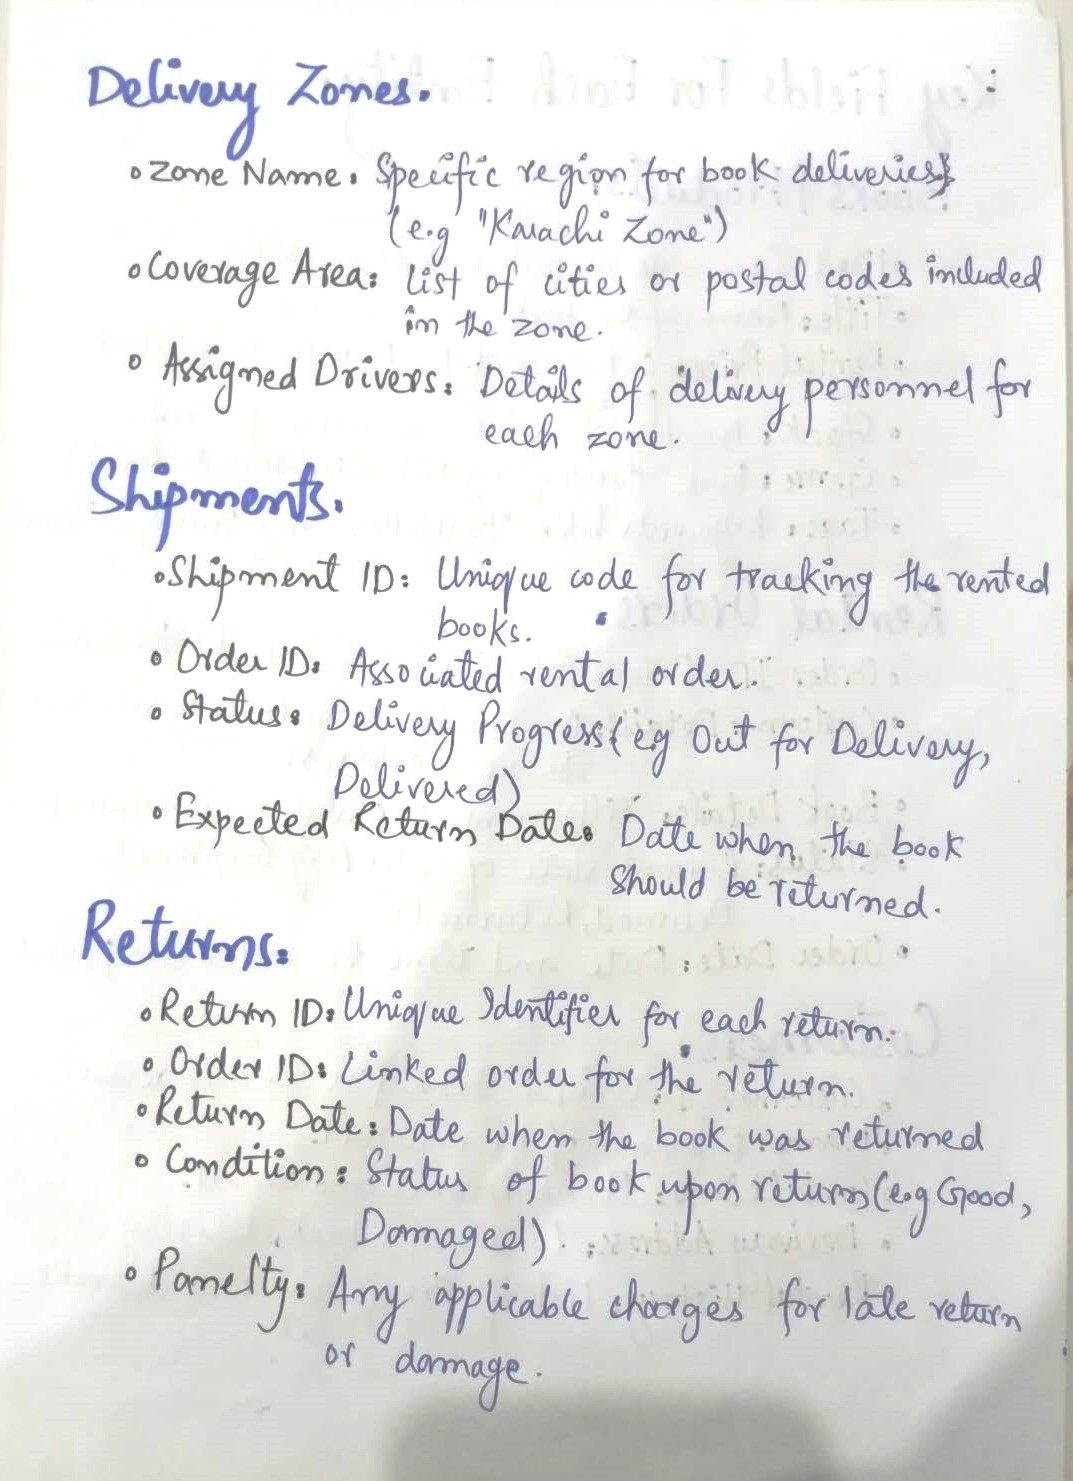 Delivery Zones.
∘ Zone Name: Specific region for book deliveries
(e.g "Karachi Zone")
∘ Coverage Area: List of cities or postal codes included
in the zone.
∘ Assigned Drivers: Details of delivery personnel for
each zone.
Shipments.
∘ Shipment ID: Unique code for tracking the rented
books.
∘ Order ID: Associated rental order.
∘ Status: Delivery Progress (eg Out for Delivery,
Delivered)
∘ Expected Return Date: Date when the book
should be returned.
Returns:
∘ Return ID: Unique Identifier for each return.
∘ Order ID: Linked order for the return.
∘ Return Date: Date when the book was returned
∘ Condition: Status of book upon return (e.g Good,
Damaged).
∘ Panelty: Any applicable charges for late return
or damage.